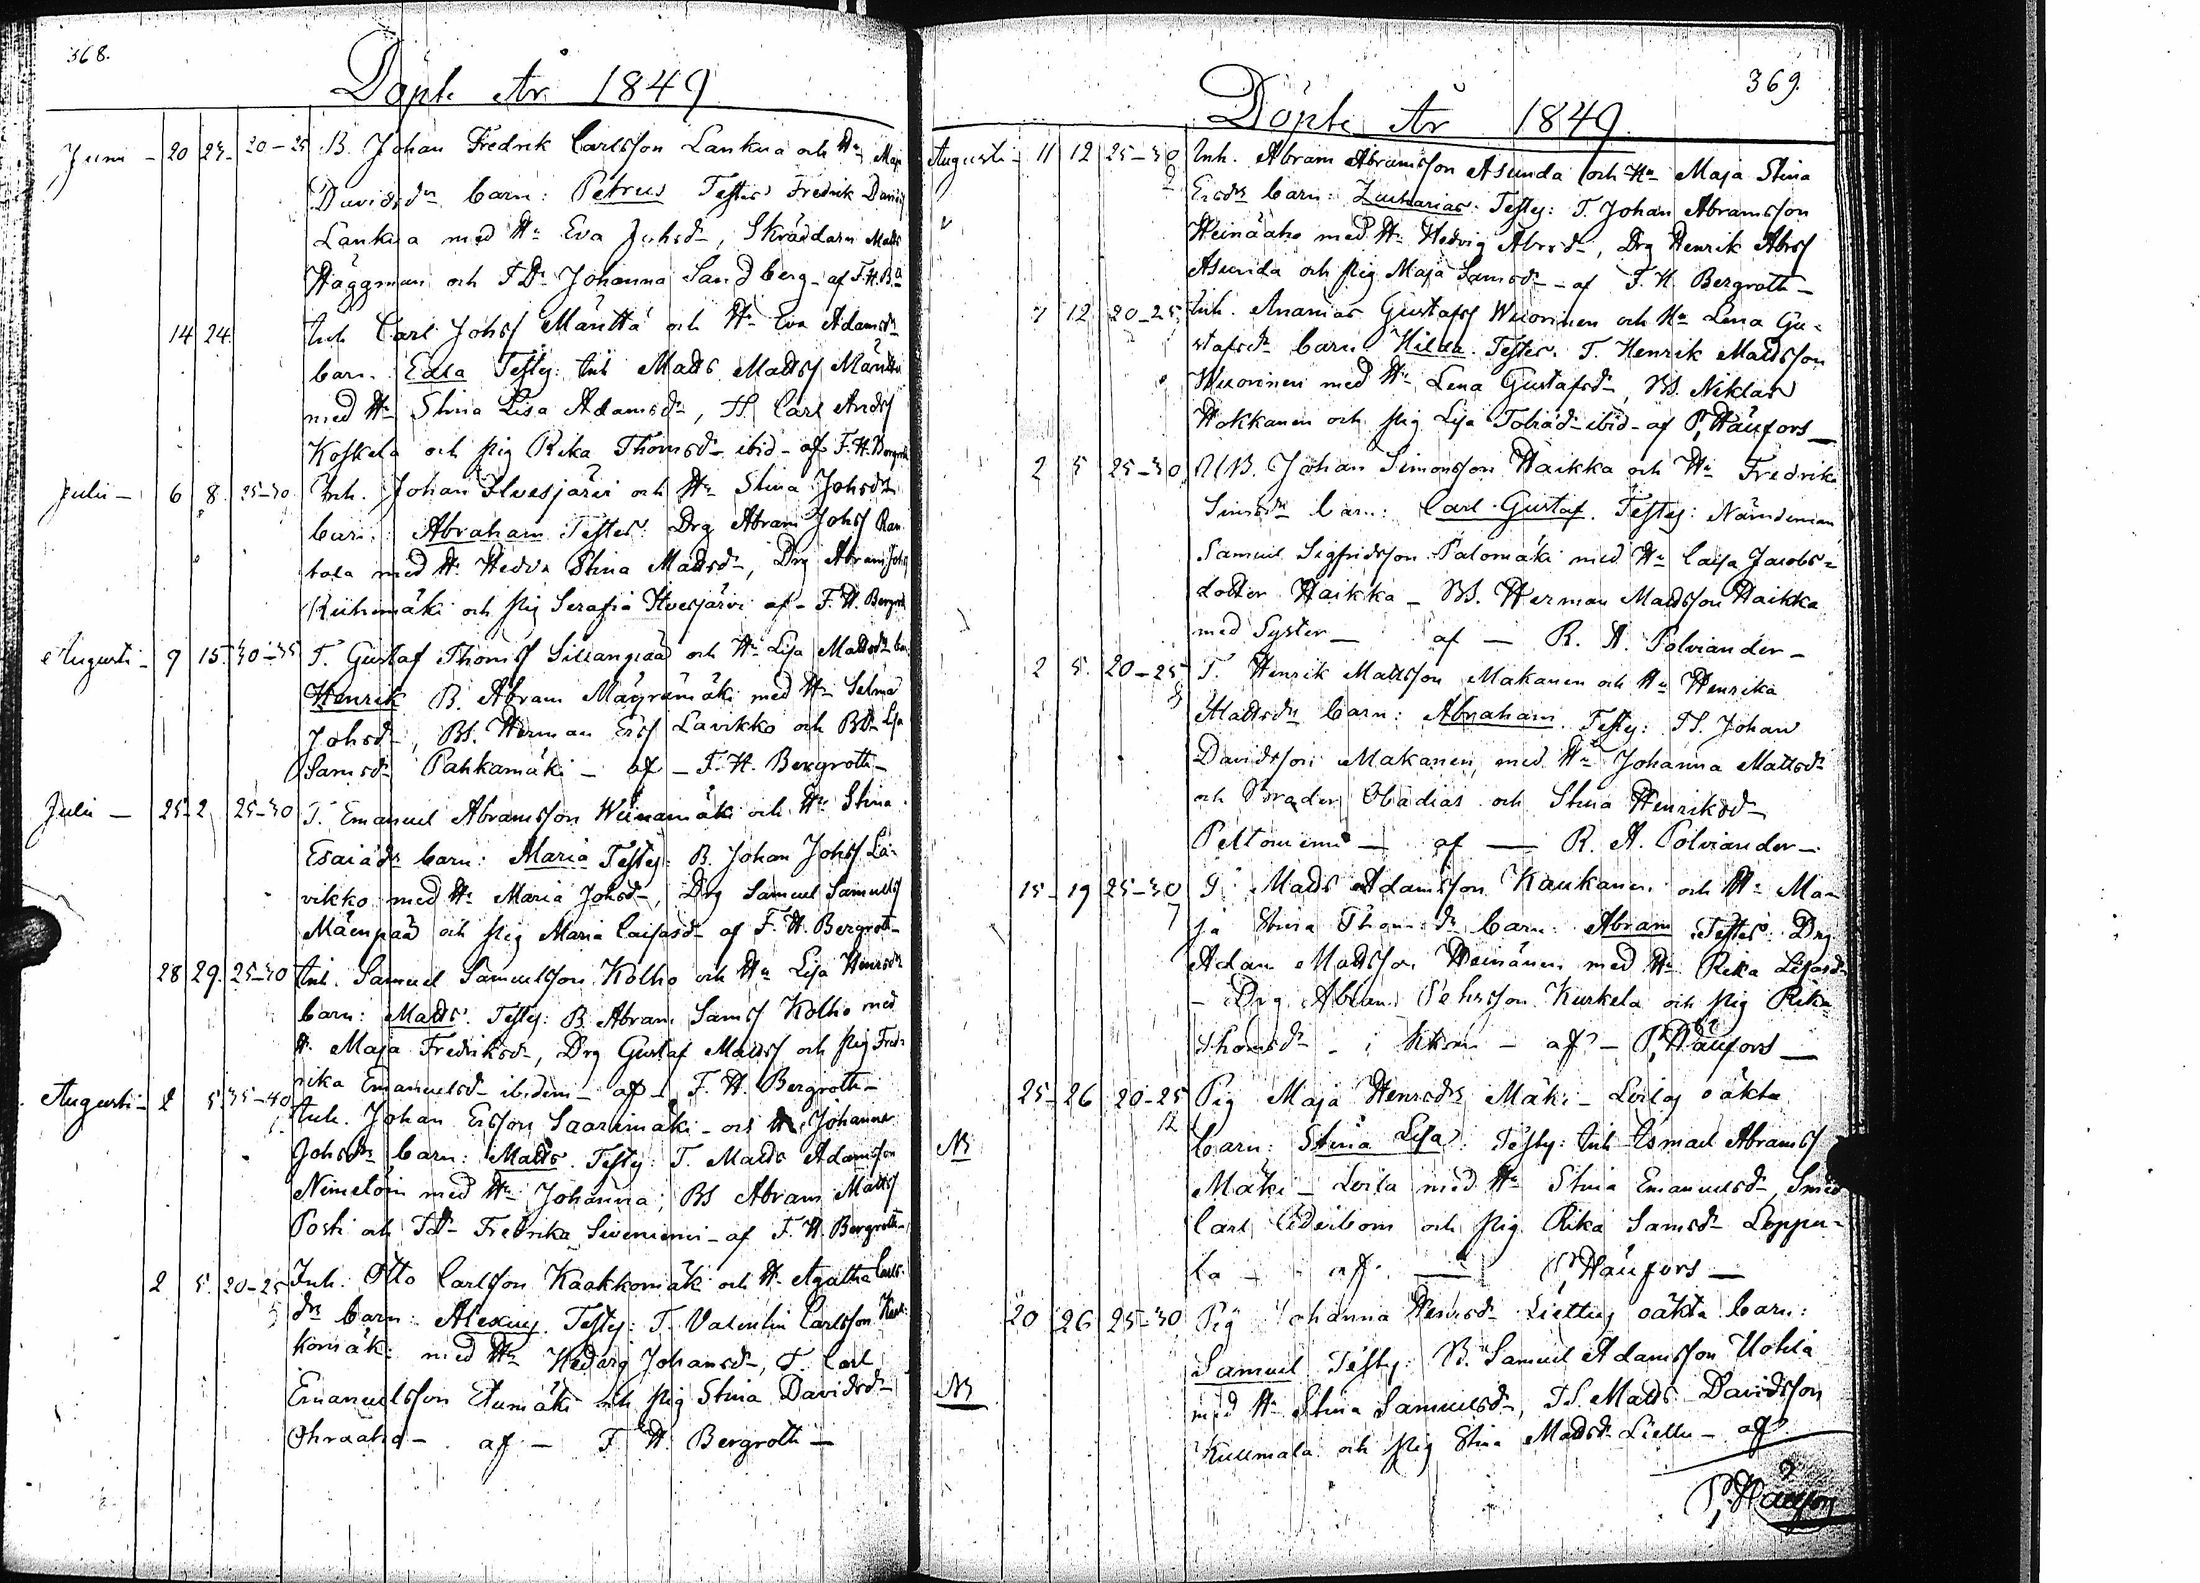 368.
Döpte År 1849
Juni - 20 24. 20-25 B. Johan Fredrik Carlsson Lankua och Hu Maja
Davidsdr barn: Petrus Testes Fredrik Davidss
Lankua med Hu Eva Johsdr, Skräddarn Matts
Häggman och TDr Johanna Sandberg - af F.H.B.
14 24 Inh Carl Johss Mänttä och Hu Eva Adamsdr
barn. Edla Testes: Inh Matts Mattss Mänttä
med Hu Stina Lisa Adamsdr, TS Carl Andss
Koskela och pig Rika Thomsdr ibid - af F.H. Bergroth
Julii - 6 8. 25-30 Inh. Johan Ilvesjärvi och Hu Stina Johsdr
barn: Abraham Testes: Drg Abram Johss Ran
tala med Hu Hedva Stina Mattsdr, Drg Abram Johss
Riihimäki och pig Serafia Ilvesjärvi af - F.H. Bergroth
Augusti - 9 15. 30-35 T. Gustaf Thomss Sillanpää och Hu Lisa Mattsdr barn
Henrik B. Abram Mäyrämäki med Hu Selma
Johsdr, BS. Herman Erss Lavikko och BDr Lisa
Samsdr Pahkamäki - af - F.H. Bergroth -
Julii - 25 2 25-30 T. Emanuel Abramsson Weinamäki och Hu Stina
Esaiædr barn: Maria Testes: B. Johan Johss La-
vikko med Hu Maria Johsdr, Drg Samuel Samuelss
Mäenpää och pig Maria Caisasdr af F.H. Bergroth -
28 29. 25-30 Inh. Samuel Samuelsson Kolho och Hu Lisa Henrsdr
barn: Matts. Testes: B. Abram Samss Kolho med
H. Maja Fredriksdr, Drg Gustaf Mattss och pig Fred-
rika Emanuelsdr ibidem - af - F.H. Bergroth -
Augusti - 2 5. 35-40 Inh. Johan Ersson Saarimäki - och Hu Johanna
Johsdr barn: Matts. Testes: T. Matts Adamsson
Nimetöin med Hu Johanna; BS Abram Mattss
Posti och TDr Fredrika Siveniemi - af F.H. Bergroth -
2 5. 20-25 Inh. Otto Carlsson Kaakkomäki och H. Agatha Carls-
dr barn: Alexius. Testes: T. Valentin Carlsson Kaak-
komäki med Hu Hedvig Johansdr, T. Carl
Emanuelsson Elumäki och pig Stina Davidsdr
Ohraaho - af - F H. Bergroth -
369.
Döpte År 1849.
Augusti - 11 12 25-30 Inh. Abram Abramsson Asunda och Hu Maja Stina
Ersdr barn: Zacharias. Testes: T. Johan Abramsson
Heinäaho med Hu Hedvig Abrsdr, Drg Henrik Abrss
Asunda och pig Maja Samsdr - af F.H. Bergroth -
7 12. 20-25 Inh. Ananias Gustafss Wuorinen och Hu Lena Gu-
stafsdr barn Hilda. Testes. T. Henrik Mattsson
Wuorinen med Hu Lena Gustafsdr, BS. Niklas
Hokkanen och pig Lisa Tobiædr ibid - af P. Häufors -
2 5 25-30 UB. Johan Simonsson Haikka och Hu Fredrika
Simsdr barn: Carl Gustaf. Testes: Nämdeman
Samuel Sigfridsson Palomäki med Hu Caisa Jacobs-
dotter Haikka - BS. Herman Mattsson Haikka
med Syster - af - R. A. Polviander -
2 5. 20-25 T. Henrik Mattsson Makanen och Hu Henrika
Mattsdr barn: Abraham. Testes: TS. Johan
Davidsson Makanen, med Hu Johanna Mattsdr
och Broder Obadias och Stina Henriksdr
Peltoniemi - af - R. A. Polviander -
15 - 19 25-30 T. Matts Adamsson Kaukanen och Hu Ma-
ja Stina Thomsdr barn: Abram Testes: Drg
Adam Mattsson Heinänen med Hu Rika Lisasdr
- Drg Abram Pehrsson Kurkela och pig Rika
Thomsdr - i - af - P. Häufors -
25 - 26 20-25 Pig Maja Henrsdr Mäki - Loilas oäkta
NB barn: Stina Lisa. Testes: Inh Ismael Abramss
Mäki - Loila med Hu Stina Emanuelsdr, Smed
Carl och pig Rika Samsdr Leppä-
la - af - P. Häufors -
20 26 25-30 Pig Johanna Henrsdr Liettus oäkta barn:
Samuel Testes: B. Samuel Adamsson Uohla
NB med Hu Stina Samuelsdr, TS. Matts Davidsson
Kuumala och pig Stina Mattsdr Liettu - af
P. Häufors